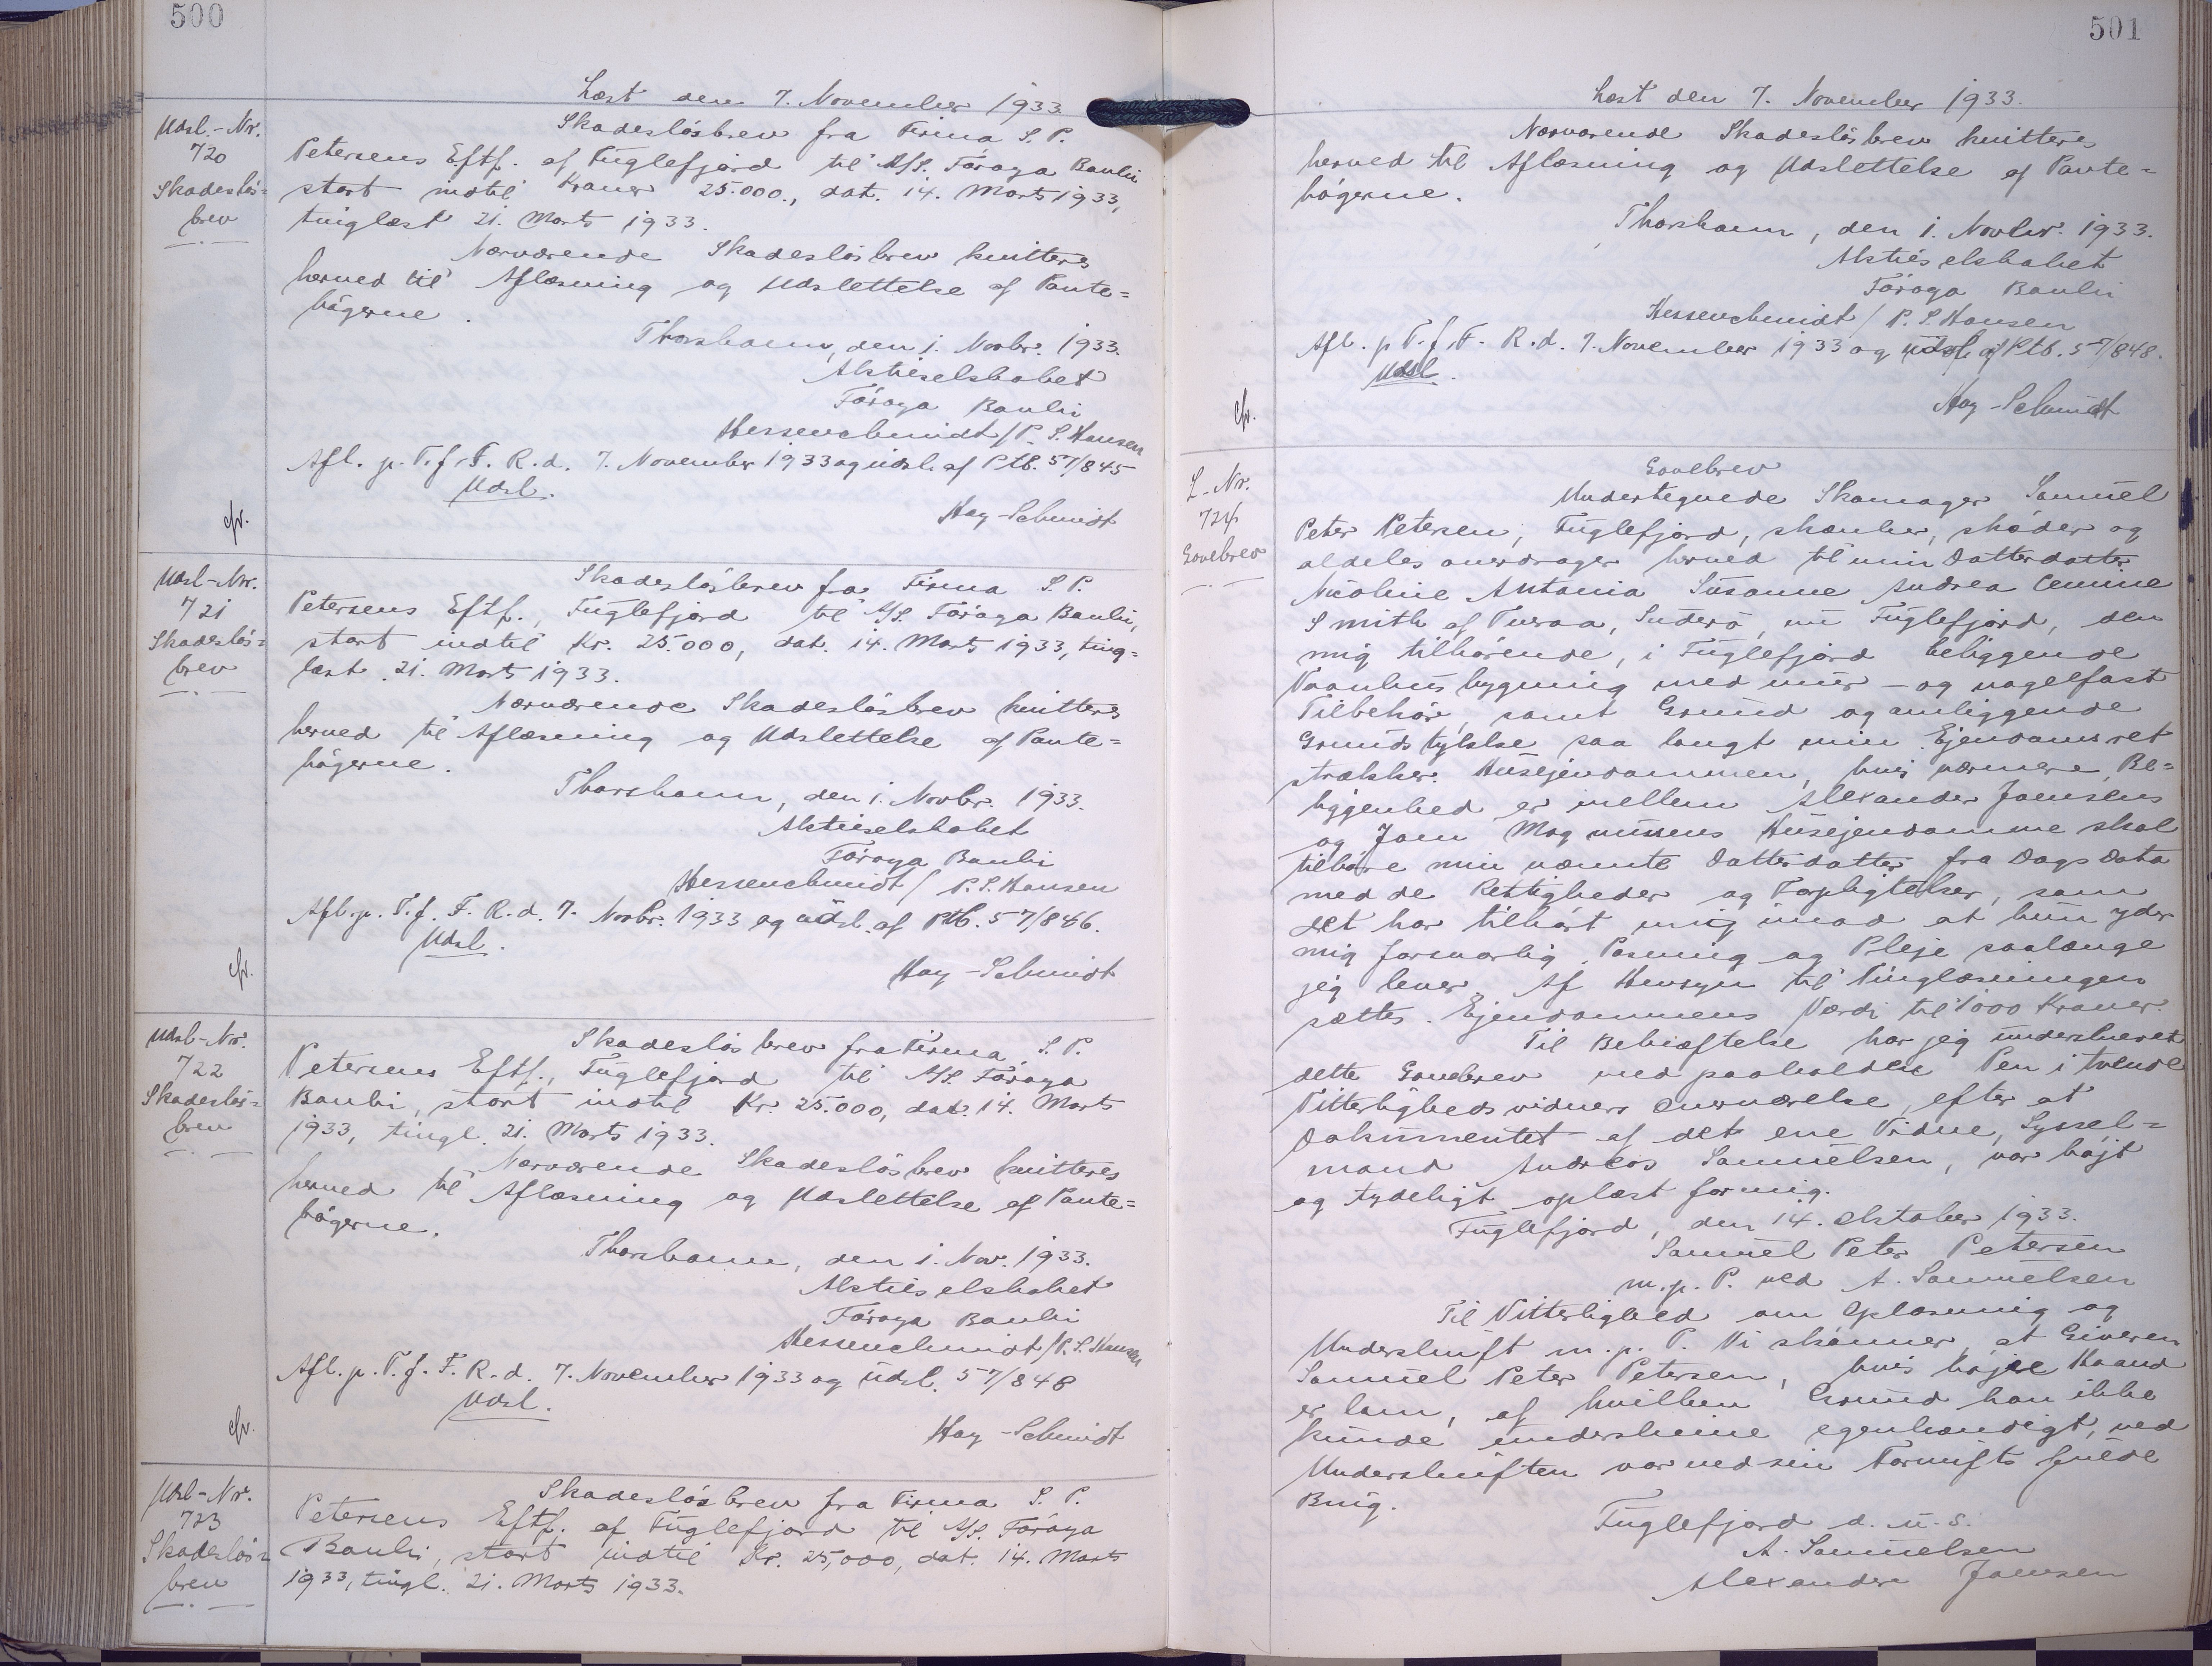 500
Læst den 7. November 1933.
Udsl.-Nr.
720
Skadesløs=
brev
Skadesløsbrev fra Firma S. P.
Petersens Eftf. af Fuglefjord til A/S. Føroya Banki
stort indtil Kroner 25.000., dat. 14. Marts 1933,
tinglæst 21. Marts 1933.
Nærværende Skadesløsbrev kvitteres
herved til Aflæsning og Udslettelse af Pante=
bøgerne.
Thorshavn, den 1. Novbr. 1933.
Aktieselskabet
Føroya Banki
Hessenschmidt / P. S. Hansen
Afl. p. T. f. F. R. d. 7. November 1933 og udsl. af Ptb. 57/845
Udsl.
Hay-Schmidt
cfr.
Udsl-Nr.
721
Skadesløs=
brev
Skadesløsbrev fra Firma S. P.
Petersens Eftf., Fuglefjord til A/S. Føroya Banki,
stort indtil Kr. 25.000, dat. 14. Marts 1933, ting=
læst 21. Marts 1933.
Nærværende Skadesløsbrev kvitteres
herved til Aflæsning og Udslettelse af Pante=
bøgerne.
Thorshavn, den 1. Novbr. 1933.
Aktieselskabet
Føroya Banki
Hessenschmidt / P. S. Hansen
Afl. p. T. f. F. R. d. 7. Novbr. 1933 og udsl. af Ptb. 57/846.
Udsl.
Hay-Schmidt
cfr.
Udsl-Nr.
722
Skadesløs=
brev
Skadesløsbrev fra Firma S. P.
Petersens Eftf., Fuglefjord til A/S. Føroya
Banki, stort indtil Kr. 25.000, dat. 14. Marts
1933, tingl. 21. Marts 1933.
Nærværende Skadesløsbrev kvitteres
herved til Aflæsning og Udslettelse af Pante=
bøgerne.
Thorshavn, den 1. Nov. 1933.
Aktieselskabet
Føroya Banki
Hessenschmidt / P. S. Hansen
Afl. p. T. f. F. R. d. 7. November 1933 og udsl. 57/848
Udsl.
Hay-Schmidt
cfr.
Udsl-Nr.
723
Skadesløs=
brev
Skadesløsbrev fra Firma S. P.
Petersens Eftf. af Fuglefjord til A/S. Føroya
Banki, stort indtil Kr. 25,000, dat. 14. Marts
1933, tingl. 21. Marts 1933.
501
Læst den 7. November 1933.
Nærværende Skadesløsbrev kvitteres
herved til Aflæsning og Udslettelse af Pante=
bøgerne.
Thorshavn, den 1. Novbr. 1933.
Aktieselskabet
Føroya Banki
Hessenschmidt / P. S. Hansen
Afl. p. T. f. F. R. d. 7. November 1933 og udsl. af Ptb. 57/848.
Udsl.
Hay-Schmidt
cfr.
L-Nr.
724
Gavebrev
Gavebrev
Undertegnede Skomager Samuel
Peter Petersen, Fuglefjord, skænker, skøder og
aldeles overdrager herved til min Datterdatter
Nicoline Antonia Susanne Andrea
Smith af Tveraa, Suderø, nu Fuglefjord, den
mig tilhørende, i Fuglefjord beliggende
Vaanhusbygning med mur- og nagelfast
Tilbehør, samt Grund og omliggende
Grundstykke saa langt min Ejendomsret
strækker. Husejendommen, hvis nærmere Be=
liggenhed er mellem Alexander Joensens
og Joan Magnussens Husejendomme skal
tilhøre min nævnte Datterdatter fra Dags Dato
med de Rettigheder og Forpligtelser, som
det har tilhørt mig imod at hun yder
mig forsvarlig Pasning og Pleje saalænge
jeg lever. Af Hensyn til Tinglæsningen
sættes Ejendommens Værdi til 1000 Kroner.
Til Bekræftelse har jeg underskrevet
dette Gavebrev med paaholden Pen i tvende
Vitterligheds vidners Overværelse, efter at
Dokumentet af det ene Vidne, Syssel=
mand Andreas Samuelsen, var højt
og tydeligt oplæst for mig.
Fuglefjord, den 14. Oktober 1933.
Samuel Peter Petersen
m. p. P. ved A. Samuelsen
Til Vitterlighed om Oplæsning og
Underskrift m. p. P. Vi skønner, at Giveren
Samuel Peter Petersen, hvis højre Haand
er lam, af hvilken Grund han ikke
kunde underskrive egenhændigt, ved
Underskriften var ved sin Fornufts fulde
Brug.
Fuglefjord d. u. s.
A. Samuelsen
Alexander Joensen